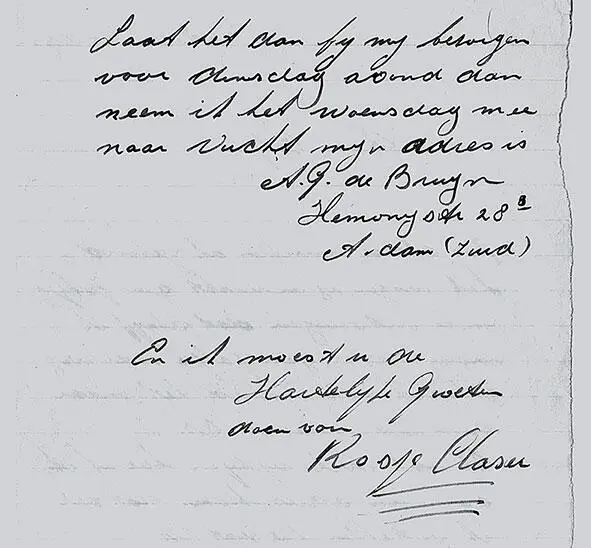 Laat het dan by my bezorgen
voor dinsdag avond dan
neem ik het woensdag mee
naar Vucht myn adres is
A.G. de Bruyn
Hemonystr 28
A.dam (Zuid)
En ik moest u de
Hartelyke Groeten
doen van
Roosje Glaser